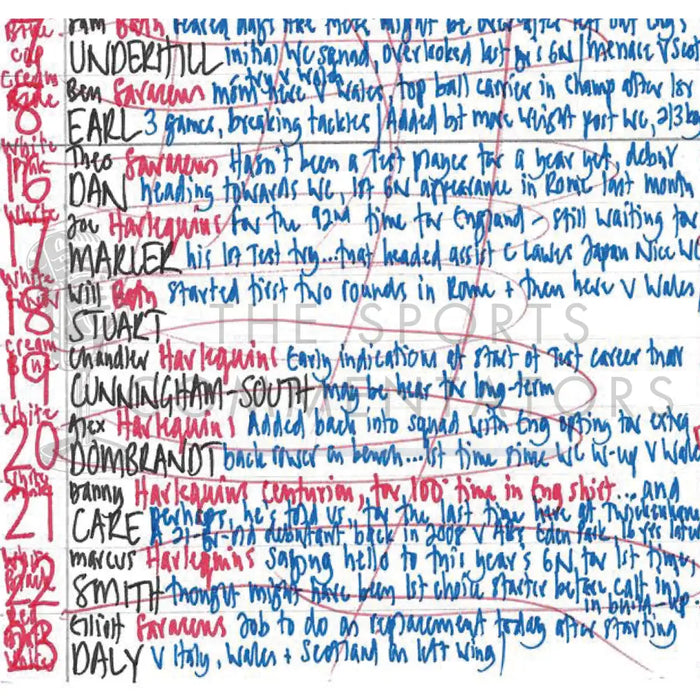 Sam Bath feared days like these might be over after left out Eng's
7 UNDERHILL initial WC squad, overlooked last yr's 6N / menace v Scot
Blue
Cap
Cream
try v Wales
Ben Saracens mom here v Wales top ball carrier in Champ after 1st
8 EARL 3 games, breaking tackles / Added bit more weight post WC, 2/3 kg
White
Pink
Theo Saracens Hasn't been a Test player for a year yet, debut
16 DAN heading towards WC, 1st 6N appearance in Rome last month
White
Joe Harlequins for the 92nd time for England - still waiting for
17 MARLER his 1st Test try...that headed assist C Lawes Japan Nice WC
White
Will Bath started first two rounds in Rome + then here v Wales
18 STUART
THE SPORTS
Cream
Chandler Harlequins Early indications at start of Test career that
19 CUNNINGHAM-SOUTH may be hear for long-term
COMMENTATORS
White
Alex Harlequins Added back into squad with Eng opting for extra
20 DOMBRANDT back rower on bench...1st time since WC w-up v Wales
Danny Harlequins centurion, for 100th time in Eng shirt...and
perhaps, he's told us, for the last time here at Twickenham
21 CARE A 21-yr-old debutant back in 2008 v ABs Eden Park 16 yrs later
Marcus Harlequins Saying hello to this year's 6N for 1st time
22 SMITH thought might have been 1st choice starter before calf inj
in build-up
Red
Elliott Saracens Job to do as replacement today after starting
23 DALY v Italy, Wales + Scotland on left wing /